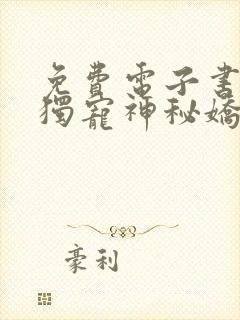 免費電子書
獨寵神秘嬌
豪利